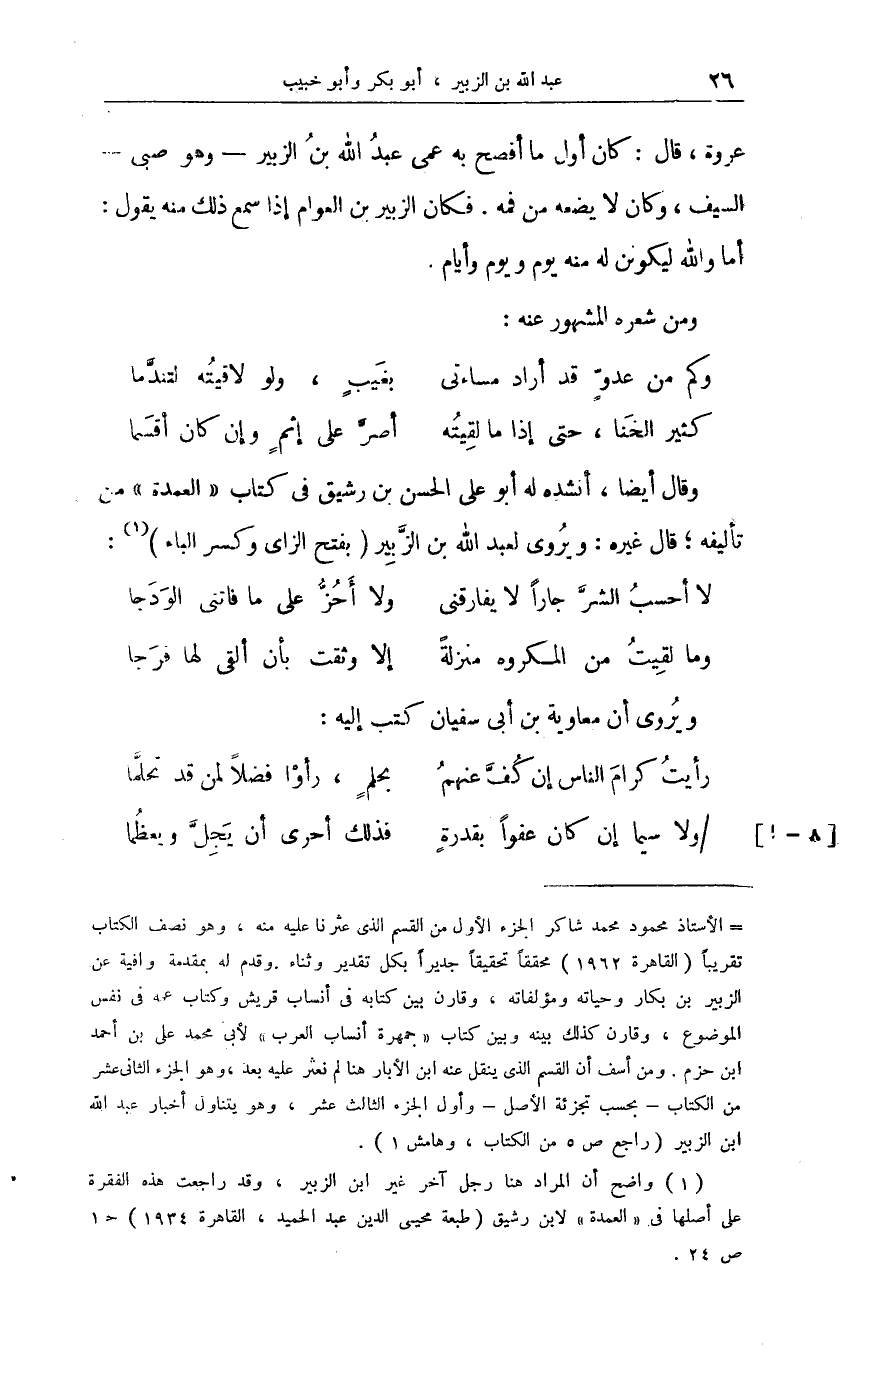 ٢٦ عبد الله بن الزبير ، أبو بكر وأبو خبيب
عروة ، قال : كان أول ما أفصح به عمى عبدُ الله بنُ الزبير — وهو صبى —
السيف ، وكان لا يضعه من فمه . فكان الزبير بن العوام إذا سمع ذلك منه يقول :
أما والله ليكونن له منه يوم ويوم وأيام .
ومن شعره المشهور عنه :
وكم من عدوٍّ قد أراد مساءتى بغَيبٍ ، ولو لاقيتُه لتندَّما
كثير الخَنا ، حتى إذا ما لقِيتُه أصرَّ على إثمٍ وإن كان أقسَما
وقال أيضا ، أنشده له أبو على الحسن بن رشيق فى كتاب « العمدة » من
تأليفه ؛ قال غيره : ويُروى لعبد الله بن الزَّبِير ( بفتح الزاى وكسر الباء )(١) :
لا أحسبُ الشرَّ جاراً لا يفارقنى ولا أَحُزُّ على ما فاتنى الوَدَجا
وما لقِيتُ من المكروه منزلةً إلا وثقت بأن ألقى لها فرَجا
ويُروى أن معاوية بن أبى سفيان كتب إليه :
رأيتُ كرامَ الناس إن كُفَّ عنهمُ بحلمٍ ، رأوْا فضلاً لمن قد تحلَّما
[٨ - ا] /ولا سيما إن كان عفواً بقدرةٍ فذلك أحرى أن يَجِلَّ ويعظُما
= الأستاذ محمود محمد شاكر الجزء الأول من القسم الذى عثرنا عليه منه ، وهو نصف الكتاب
تقريباً ( القاهرة ١٩٦٢ ) محققاً تحقيقاً جديراً بكل تقدير وثناء . وقدم له بمقدمة وافية عن
الزبير بن بكار وحياته ومؤلفاته ، وقارن بين كتابه فى أنساب قريش وكتاب عمه فى نفس
الموضوع ، وقارن كذلك بينه وبين كتاب « جمهرة أنساب العرب » لأبى محمد على بن أحمد
ابن حزم . ومن أسف أن القسم الذى ينقل عنه ابن الأبار هنا لم نعثر عليه بعد ، وهو الجزء الثانى عشر
من الكتاب – بحسب تجزئة الأصل – وأول الجزء الثالث عشر ، وهو يتناول أخبار عبد الله
ابن الزبير ( راجع ص ٥ من الكتاب ، وهامش ١ ) .
( ١ ) واضح أن المراد هنا رجل آخر غير ابن الزبير ، وقد راجعت هذه الفقرة
على أصلها فى « العمدة » لابن رشيق ( طبعة محيى الدين عبد الحميد ، القاهرة ١٩٣٤ ) ح ١
ص ٢٤ .